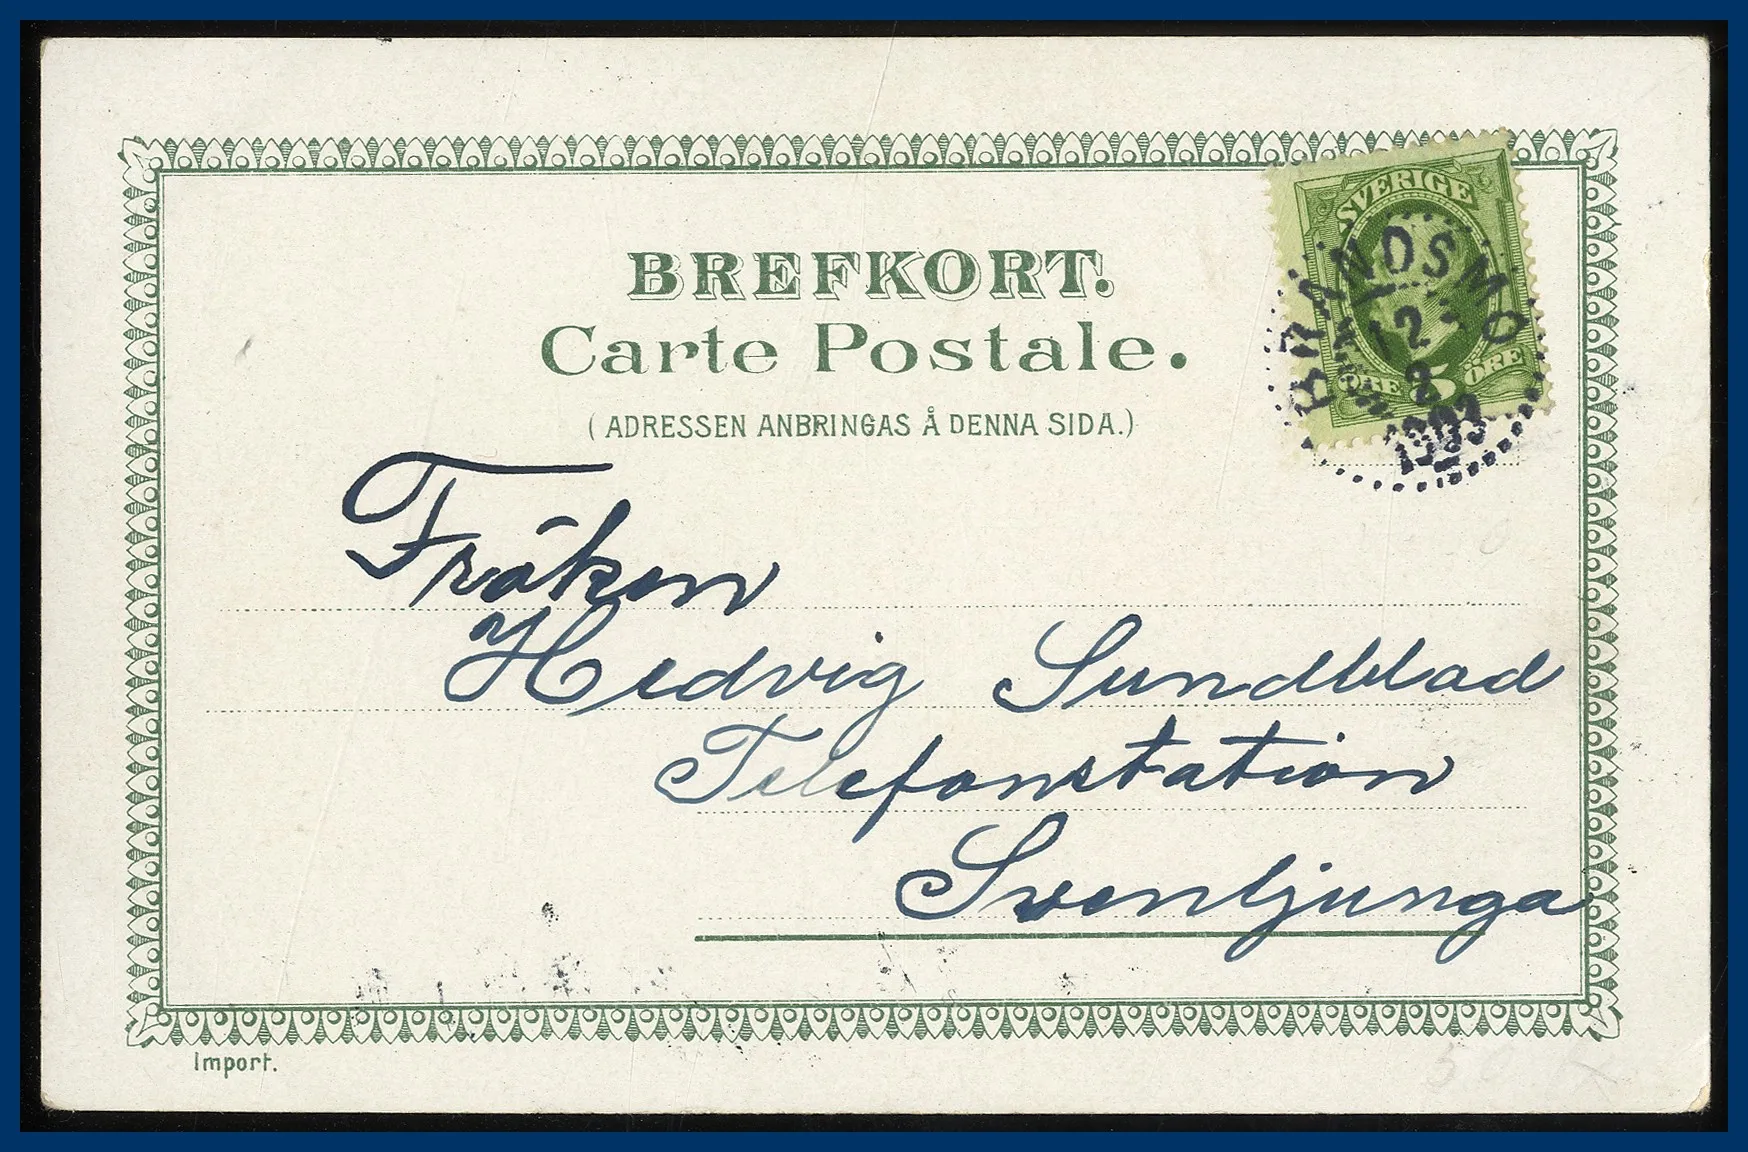 BREFKORT.
Carte Postale.
(ADRESSEN ANBRINGAS Å DENNA SIDA.)
SVERIGE
5 ÖRE
BRANDSMO
12
2
1903
Fröken
Hedvig Sundblad
Telefonstation
Svenljunga
Import.